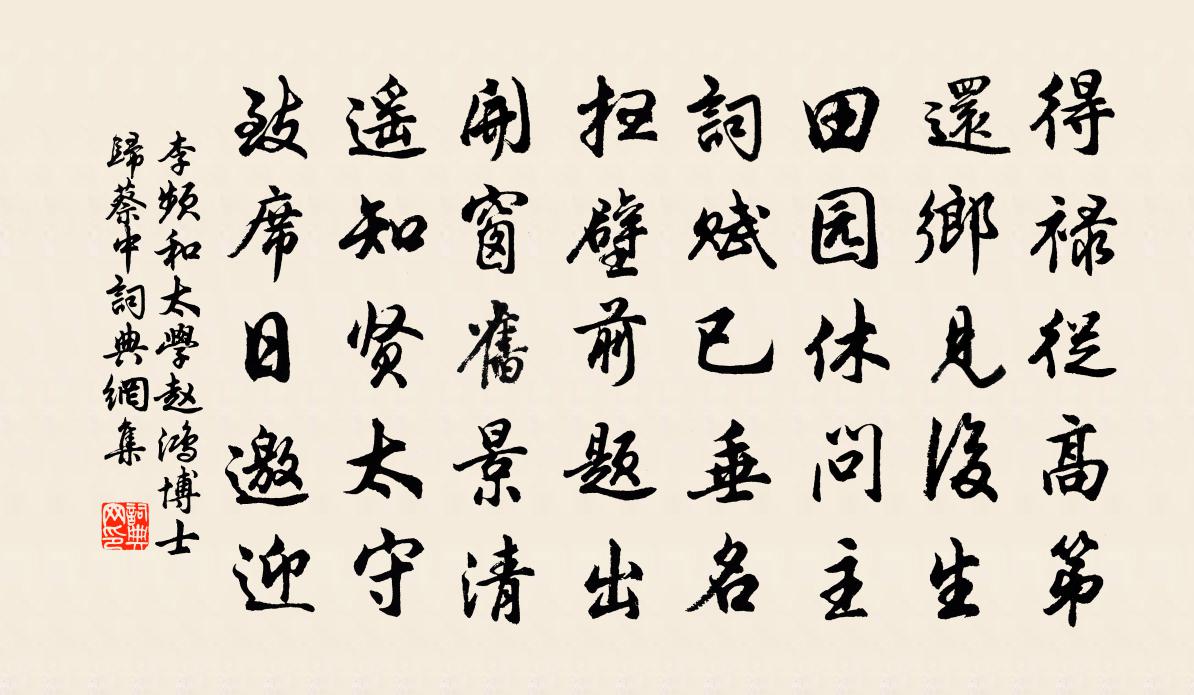 得禄从高第
還鄉見後生
田园休问主
詞赋已垂名
扫壁前题出
開窗舊景清
遥知贤太守
致席日邀迎
李频和太學赵鴻博士
歸蔡中詞典網集
詞典
网印